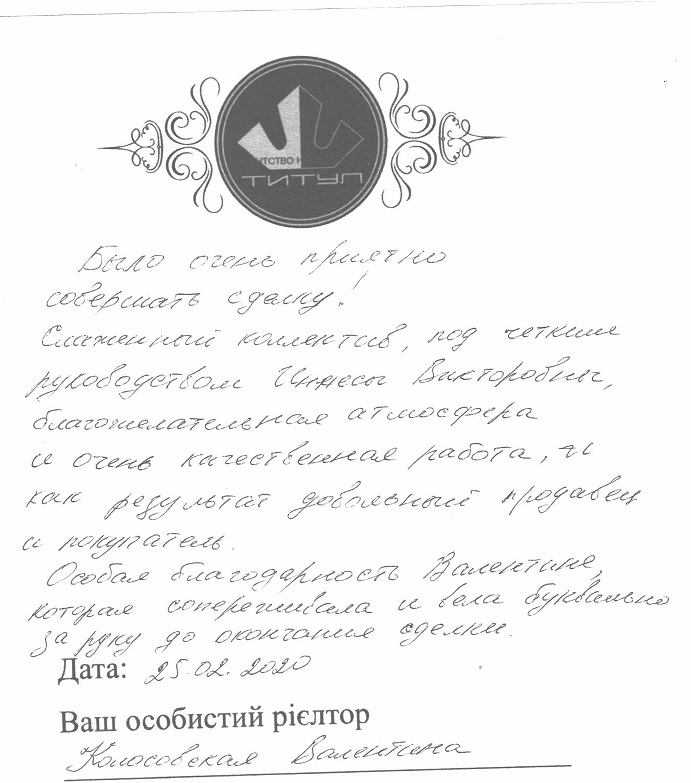 НТСТВО Н
ТИТУЛ
Было очень приятно
совершать сделку!
Слаженный коллектив, под четким
руководством Инессы Викторовны,
благожелательная атмосфера
и очень качественная работа, и
как результат довольный продавец
и покупатель.
Особая благодарность Валентине,
которая сопереживала и вела буквально
за руку до окончания сделки.
Дата: 25.02.2020
Ваш особистий рієлтор
Колосовская Валентина